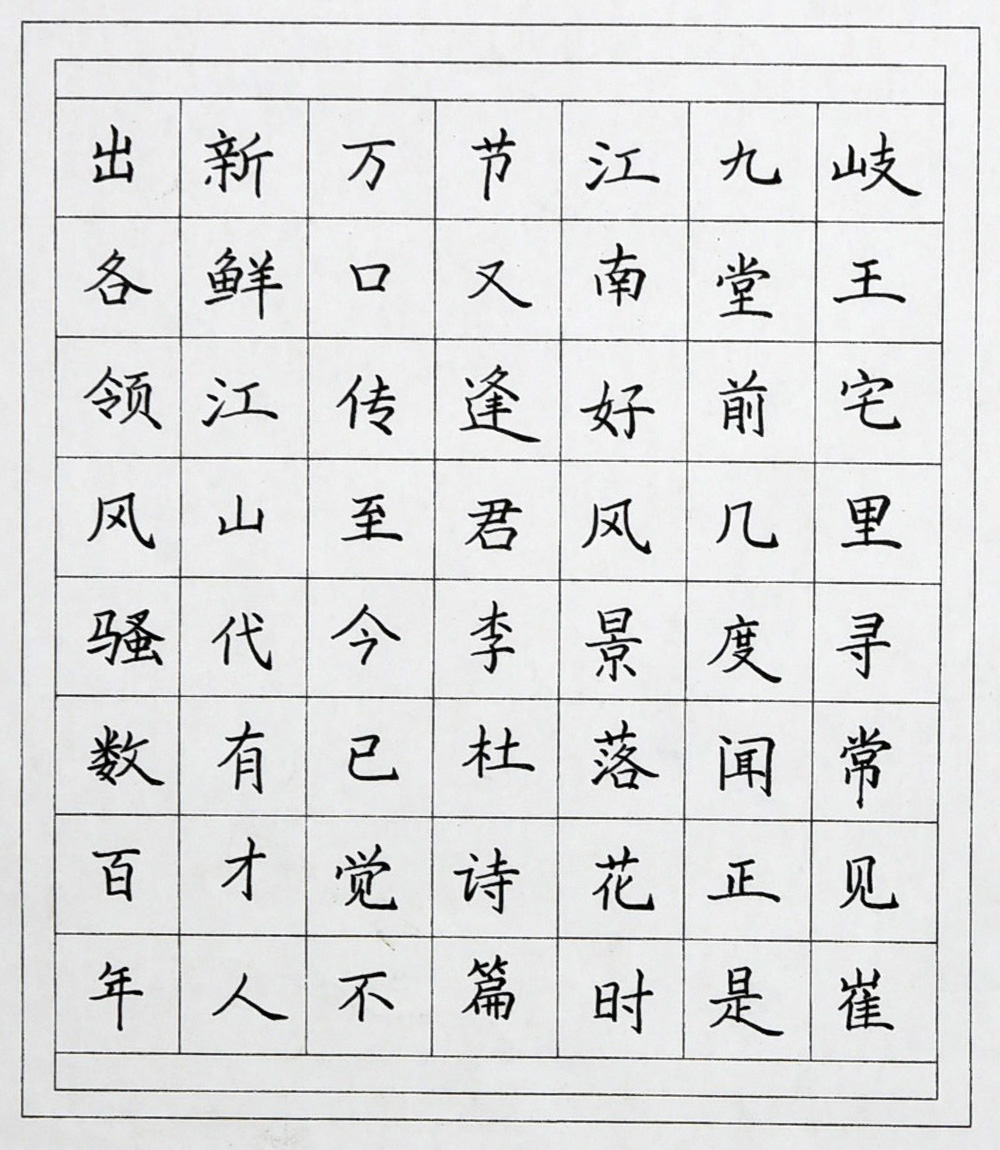 岐王宅里寻常见崔
九堂前几度闻正是
江南好风景落花时
节又逢君李杜诗篇
万口传至今已觉不
新鲜江山代有才人
出各领风骚数百年